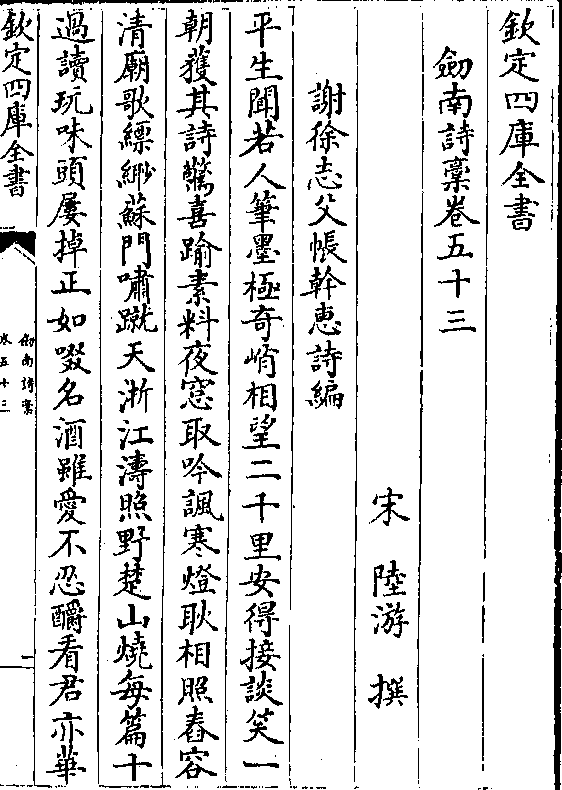 欽定四庫全書
劔南詩稾卷五十三
宋 陸游 撰
謝徐志父帳幹惠詩編
平生聞若人筆墨極奇峭相望二千里安得接談笑一
朝獲其詩驚喜踰素料夜窓取吟諷寒燈耿相照舂容
清廟歌縹緲蘇門嘯蹴天浙江濤照野楚山燒每篇十
過讀玩味頭屢掉正如啜名酒雖愛不忍釂看君亦華
欽定四庫全書
劔南詩稾
卷五十三
一